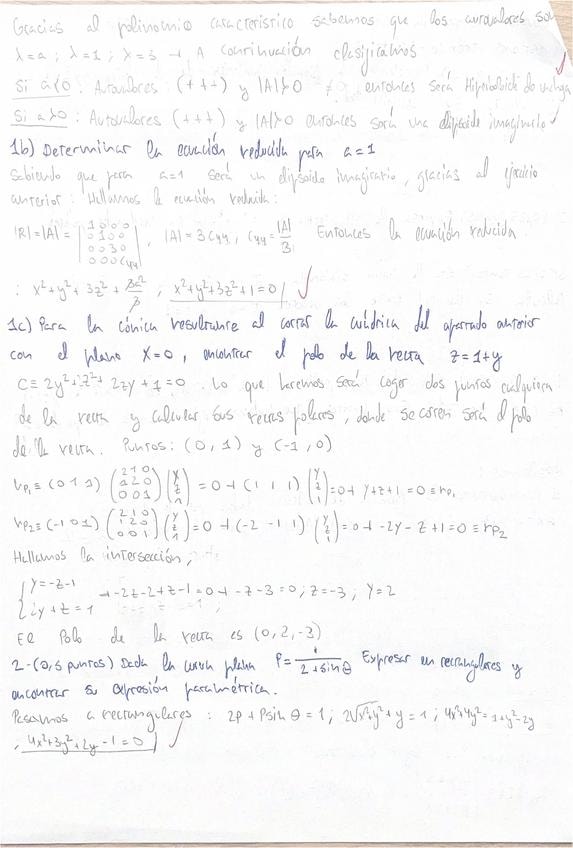 Gracias al polinomio característico sabemos que los autovalores son
λ=a ; λ=1 ; λ=3 → A continuación clasificamos
Si a<0 : Autovalores: (+ + +) y |A|>0 ≠0, entonces será Hiperboloide de una hoja
Si a>0 : Autovalores (+++) y |A|>0 entonces será una elipsoide imaginario
1b) Determinar la ecuación reducida para a=1
Sabiendo que para a=1 será un elipsoide imaginario, gracias al ejercicio
anterior: Hallamos la ecuación reducida:
|R|=|A|= |1 0 0 0 / 0 1 0 0 / 0 0 3 0 / 0 0 0 C44| , |A|=3C44 , C44=|A|/3 Entonces la ecuación reducida
: x²+y²+3z²+ /3 ; x²+y²+3z²+1=0
1c) Para la cónica resultante al cortar la cuádrica del apartado anterior
con el plano X=0, encontrar el polo de la recta z=1+y
C≡ 2y²+2z²+ 2zy +1=0 . Lo que haremos será coger dos puntos cualquiera
de la recta y calcular sus rectas polares, donde se corten será el polo
de la recta. Puntos: (0,1) y (-1,0)
rp₁≡ (0 1 1) (2 1 0 / 2 0 / 0 0 1) (z / 1) =0 → (1 1 1) (y / z / 1) =0→ y+z+1=0 ≡ rp₁
rp₂≡ (-1 0 1) (2 1 0 / 1 2 0 / 0 0 1) (y / z / 1) =0 → (-2 -1 1) (y / z / 1) =0→ -2y-z+1=0 ≡ rp₂
Hallamos la intersección,
{ y=-z-1 / 2y+z=1 → -2z-2+z-1=0→ -z-3=0; z=-3 ; y=2
El Polo de la recta es (0,2,-3)
2-(0,5 puntos) Dada la curva plana P=1/(2+sinθ) Expresar en rectangulares y
encontrar su expresión paramétrica.
Pasamos a rectangulares : 2P+Psinθ=1 ; 2√x²+y² + y = 1 ; 4x²+4y²=1+y²-2y
, 4x²+3y²+2y-1=0